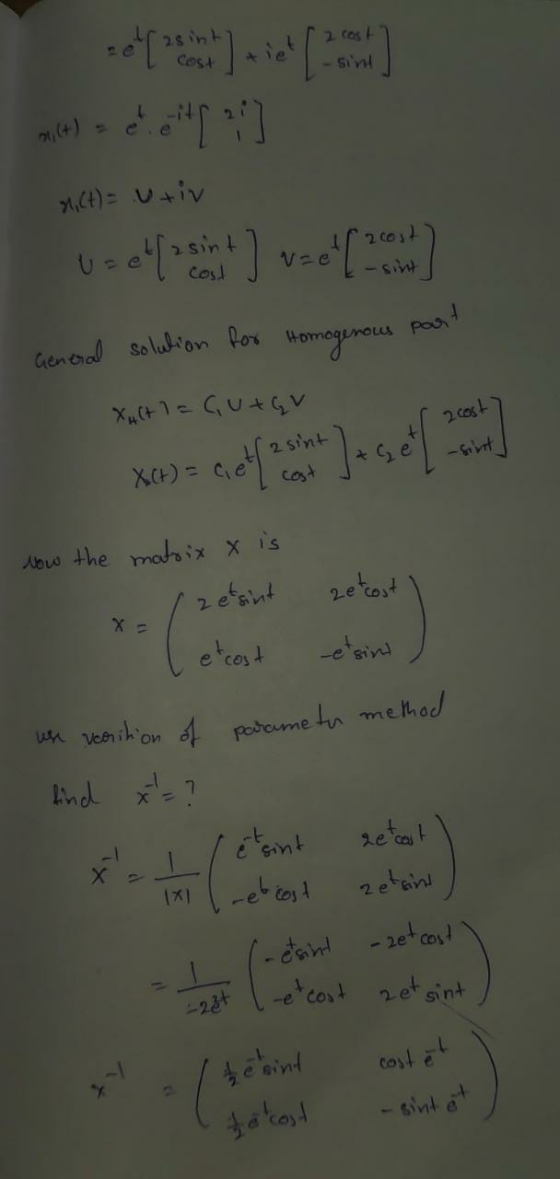 = e^t [ 2sint cost ] + ie^t [ 2cost -sint ]
x₁(t) = e^t . e^-it [ 2i 1 ]
x₁(t) = U + iV
U = e^t [ 2sint cost ] V = e^t [ 2cost -sint ]
General solution for Homogenous part
X_H(t) = C₁U + C₂V
X(t) = C₁e^t [ 2sint cost ] + C₂e^t [ 2cost -sint ]
Now the matrix X is
X = ( 2e^t sint 2e^t cost
e^t cost -e^t sint )
use of parameter method
find x^-1 = ?
x^-1 = 1/|X| ( e^-t sint 2e^t cost
-e^t cost 2e^t sint )
= 1/-2e^2t ( -e^t sint -2e^t cost
-e^t cost 2e^t sint )
x^-1 = ( 1/2 e^-t sint cost e^-t
1/2 e^-t cost -sint e^-t )